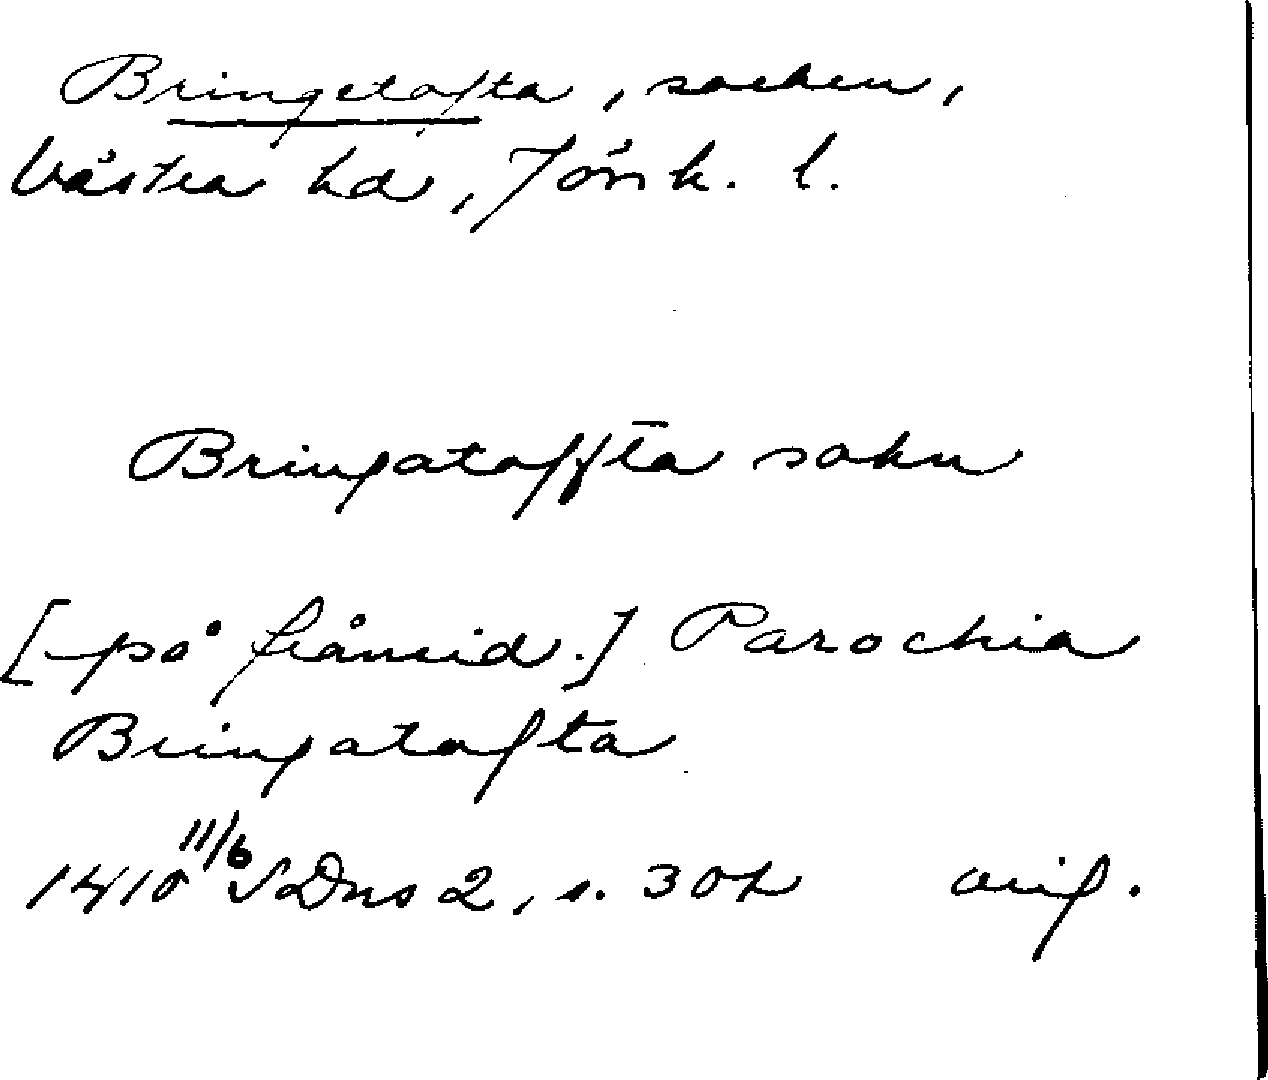 Bringetofta, socken,
Västra hd, Jönk. l.
Bringatoffta sokn
[-på frånsid.] Parochia
Bringatofta
1410 11/6 SDns 2, s. 302 orig.